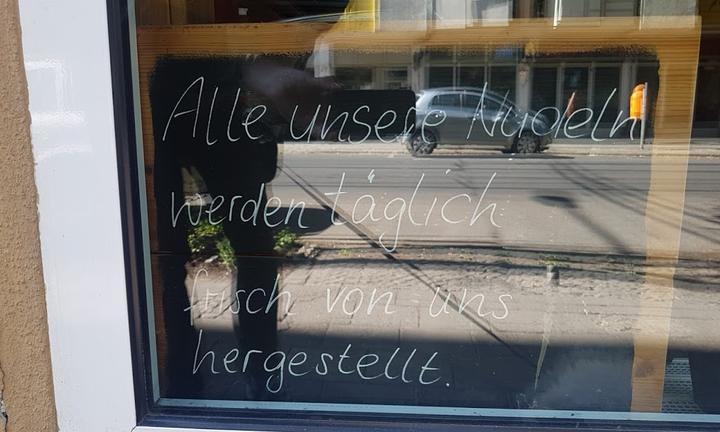 Alle unsere Nudeln
werden täglich
frisch von uns
hergestellt.